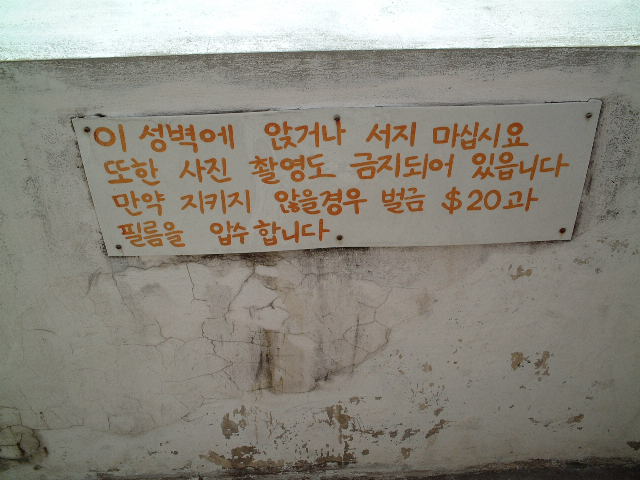 이 성벽에 앉거나 서지 마십시요
또한 사진 촬영도 금지되어 있읍니다
만약 지키지 않을경우 벌금 $20과
필름을 압수합니다